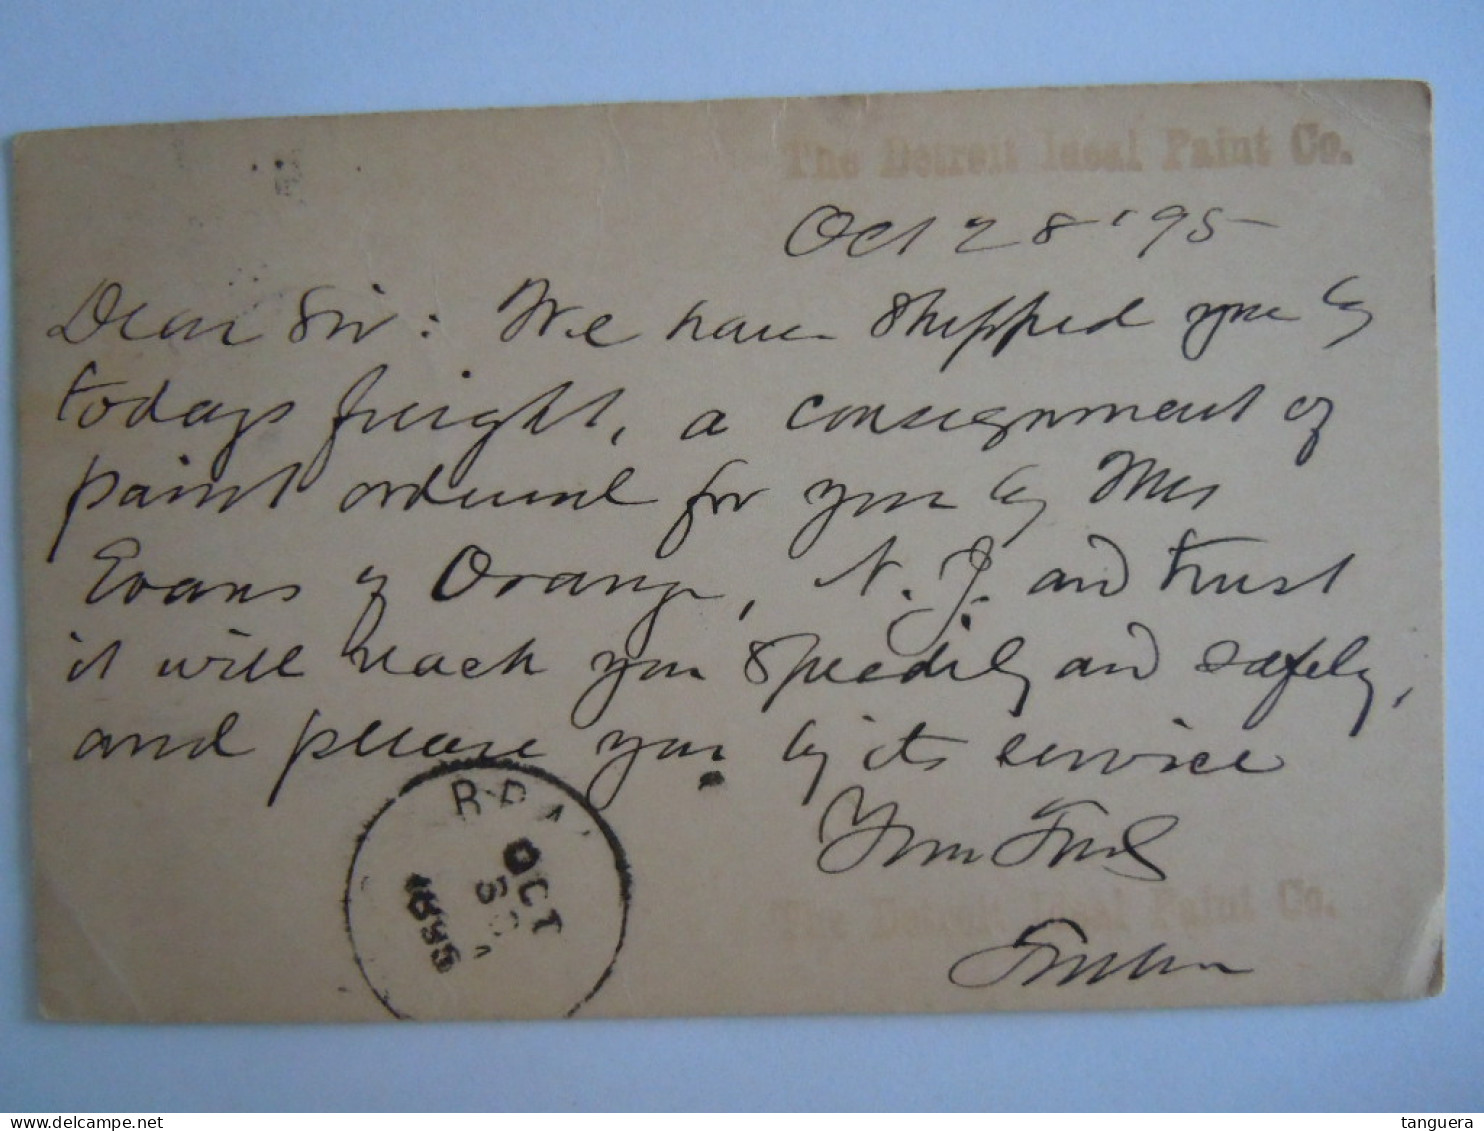 The Detroit Ideal Paint Co.
Oct 28 '95
Dear Sir: We have shipped you by
todays freight, a consignment of
paint ordered for you by Mrs
Evans of Orange, N.J. and trust
it will reach you speedily and safely,
and please you by its service
Your
The Detroit Ideal Paint Co.
OCT
30
1895
tanguera